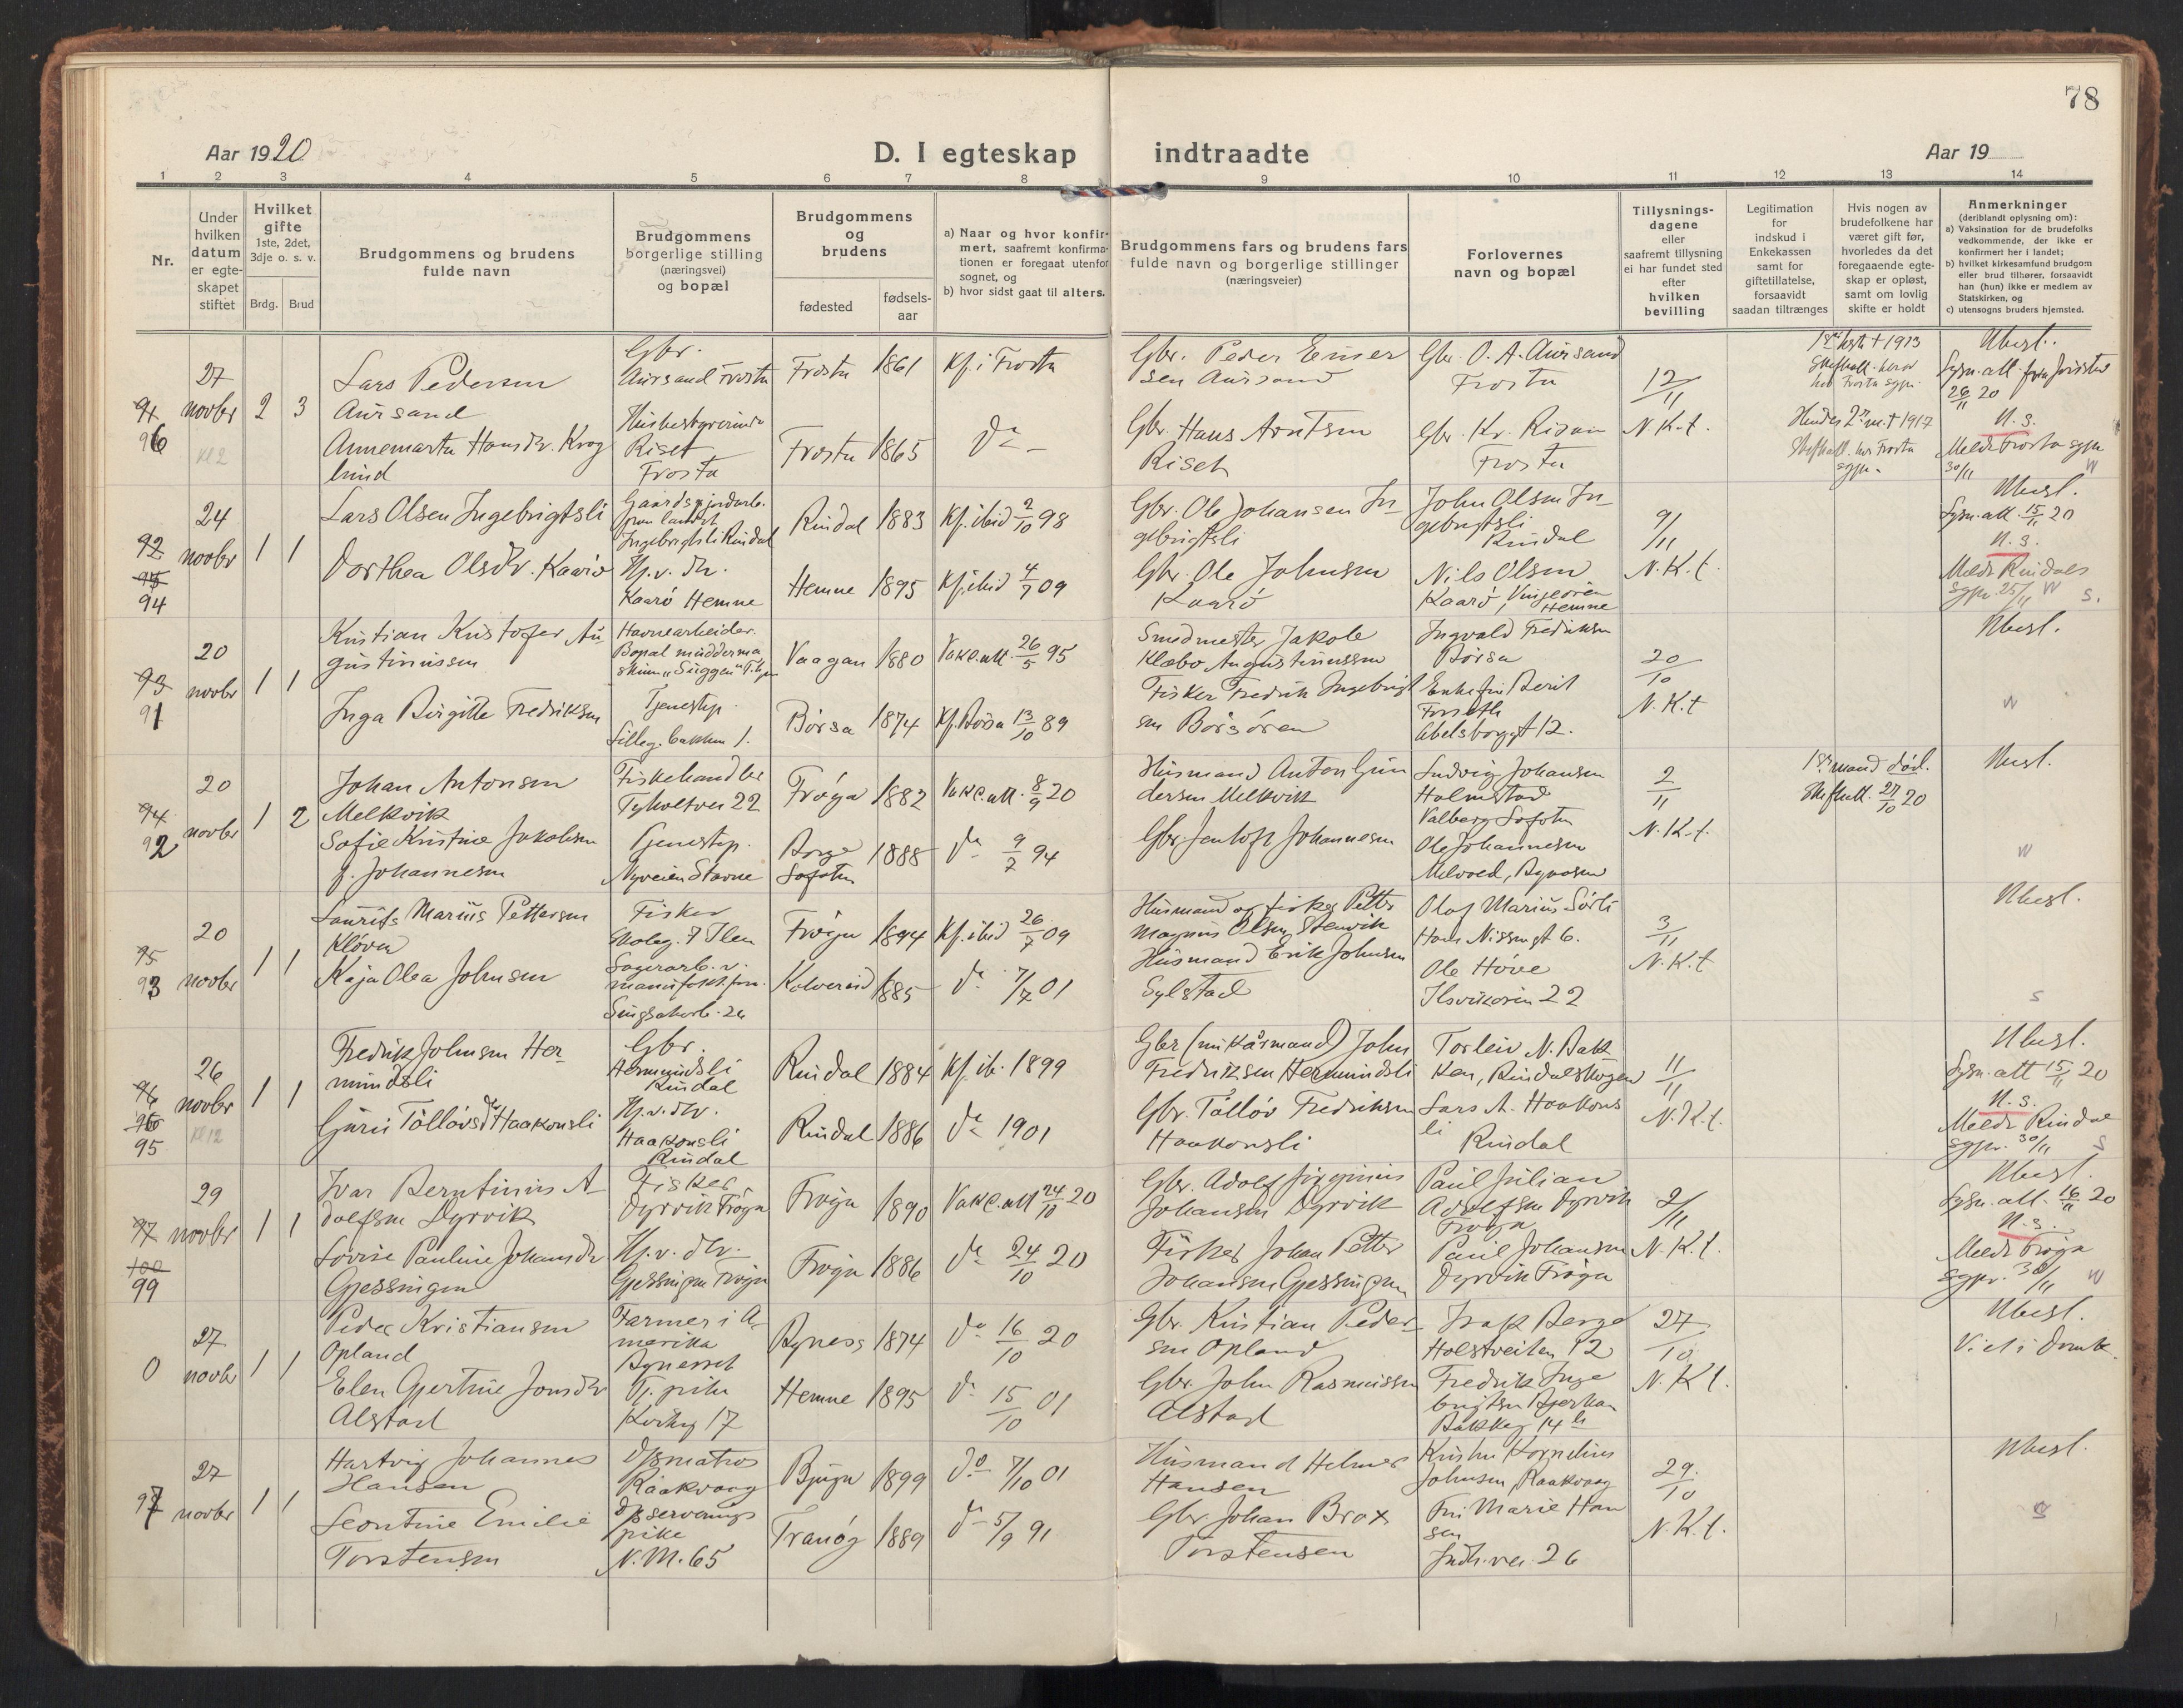 78
Aar 1920
D. I egteskap indtraadte
Aar 19
1 2 3 4 5 6 7 8 9 10 11 12 13 14
Nr.
Under hvilken datum er egteskapet stiftet
Hvilket gifte 1ste, 2det, 3dje o. s. v.
Brdg. Brud
Brudgommens og brudens fulde navn
Brudgommens borgerlige stilling (næringsvei) og bopæl
Brudgommens og brudens
fødested
fødselsaar
a) Naar og hvor konfirmert, saafremt konfirmationen er foregaat utenfor sognet, og
b) hvor sidst gaat til alters.
Brudgommens fars og brudens fars fulde navn og borgerlige stillinger (næringsveier)
Forlovernes navn og bopæl
Tillysningsdagene eller saafremt tillysning ei har fundet sted efter hvilken bevilling
Legitimation for indskud i Enkekassen samt for giftetillatelse, forsaavidt saadan tiltrænges
Hvis nogen av brudefolkene har været gift før, hvorledes da det foregaaende egteskap er opløst, samt om lovlig skifte er holdt
Anmerkninger
(deriblandt oplysning om):
a) Vaksination for de brudefolks vedkommende, der ikke er konfirmert her i landet;
b) hvilket kirkesamfund brudgom eller brud tilhører, forsaavidt han (hun) ikke er medlem av Statskirken, og
c) utensogns bruders hjemsted.
91 96
27 novbr
2 3
Lars Pedersen Aursand
Gbr. Aursand Frosta
Frosta 1861 Kf. i Frosta
Gbr. Peder Einersen Aursand
Gbr. O. A. Aursand Frosta
12/11 N.K.t.
Annemarta Hansdtr. Krog lund
Riset Frosta
Frosta 1865 do
Gbr. Hans Arntsen Riset
Gbr. Kr. Risan Frosta
26/11 20
U. s.
Meldt Frosta sgpr 30/11
92 95 94
24 novbr
1 1
Lars Olsen Ingebrigtsli
Ingebrigtsli Rindal
Rindal 1883 Kf. ibid 2/10 98
Gbr. Ole Johansen Ingebrigtsli
John Olsen Ingebrigtsli Rindal
9/11 N.K.t.
Ubesl.
Sysm. att. 15/11 20
U. s.
Dorthea Olsdtr. Kaarö
Hj.v. dtr. Kaarö Hemne
Hemne 1895 Kf. ibid 4/7 09
Gbr. Ole Johnsen Kaarö
Nils Olsen Kaarö, Vinjeören Hemne
Meldt Rindals sgpr. 25/11
93 91
20 novbr
1 1
Kristian Kristofer Augustinussen
Havnearbeider.
Vaagan 1880 Vakc. att. 26/5 95
Smedmester Jakob Klæbo Augustinussen
Ingvald Fredriksen Börsa
20/10 N.K.t
Ubesl.
Inga Birgitte Fredriksen
Tjenestep.
Börsa 1874 Kf. Börsa 13/10 89
Fisker Fredrik Ingebrigtsen Börsören
Enkefru Berit Forseth
94 92
20 novbr
1 2
Johan Antonsen Melkvik
Fiskehandler Tyholtvei 22
Fröya 1882 Vakc. att. 8/9 20
Husmand Anton Gundersen Melkvik
Ludvig Johansen Holmstad Valberg Lofoten
2/11 N.K.t.
1ste mand död. Skifteatt. 27/10 20
Ubesl.
Sofie Kristine Jakobsen f. Johannesen
Tjenestep. Nyveien Stavne
Borge Lofoten 1888 do 9/7 94
Gbr. Jentoft Johannesen
Ole Johannesen
95 93
20 novbr
1 1
Laurits Marius Pettersen Klöven
Fisker
Fröya 1894 Kf. ibid 26/7 09
Husmand og fisker Petter Magnus Olsen Stenvik
Olaf Marius Sörli Hans Nissensgt 6.
3/11 N.K.t
Ubesl.
Kaja Olea Johnsen
Kolvereid 1885 do 7/7 01
Husmand Erik Johnsen Sylstad
Ole Höve Ilsvikören 22
96 95
26 novbr
1 1
Fredrik Johnsen Hermundsli
Gbr. Hermundsli Rindal
Rindal 1884 Kf. ib. 1899
Gbr. John Fredriksen Hermundsli
Torleiv N. Bakken, Rindalskogen
11/11 N.K.t.
Ubesl.
Sysm. att 15/11 20
U. s.
Guru Tøllövsdtr Haakonsli
Hj.v. dtr. Haakonsli Rindal
Rindal 1886 do 1901
Gbr. Tøllöv Fredriksen Haakonsli
Lars A. Haakonsli Rindal
Meldt Rindal sgpr. 30/11
97 100 99
29 novbr
1 1
Ivar Berntinus Adolfsen Dyrvik
Fisker Dyrvik Fröya
Fröya 1890 Vakc. att 24/10 20
Gbr. Adolf Johansen Dyrvik
Paul Julian Adolfsen Dyrvik Fröya
2/11 N.K.t.
Ubesl.
Sysm. att. 16/11 20
U. s.
Lovise Pauline Johansdtr Gjessingen
Hj.v. dtr. Gjessingen Fröya
Fröya 1886 do 24/10 20
Fisker Johan Petter Johansen Gjessingen
Paul Johansen Dyrvik Fröya
Meldt Fröya sgpr. 30/11
0
27 novbr
1 1
Peder Kristiansen Opland
Farmer i Amerika Bynesset
Byness 1874 do 16/10 20
Gbr. Kristian Pedersen Opland
Holstveiten 12
27/10 N.K.t.
Ubesl.
Elen Gjertine Jonsdtr Alstad
Tj. pike 17
Hemne 1895 do 15/10 01
Gbr. John Rasmussen Alstad
Fredrik Ingebrigtsen Bakkeg 14 b
97
27 novbr
1 1
Hartvig Johannes Hansen
D/Smatros Raakvaag
Bjugn 1899 do 7/10 01
Husmand Helmer Hansen
Johnsen, Raakvaag
29/10 N.K.t.
Ubesl.
Leontine Emilie Torstensen
D/S serveringspike N.M. 65
Tranöy 1889 do 5/9 91
Gbr. Johan Brox Torstensen
Fru Marie Hansen